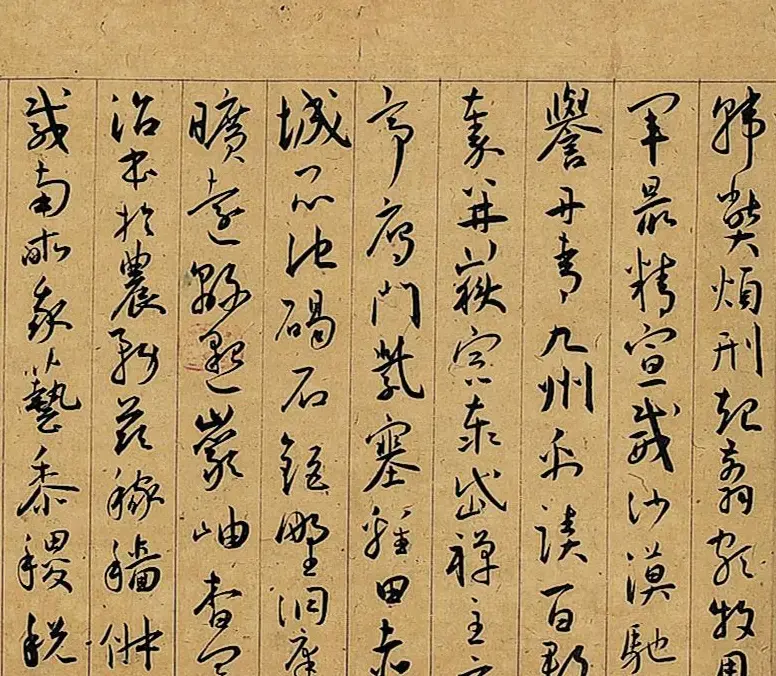 韓弊煩刑起翦頗牧用
軍最精宣威沙漠馳
譽丹青九州禹蹟百郡
秦并嶽宗泰岱禪主
亭雁門紫塞雞田赤
城昆池碣石鉅野洞庭
曠遠綿邈巖岫杳冥
治本於農務茲稼穡俶
載南畝我藝黍稷稅